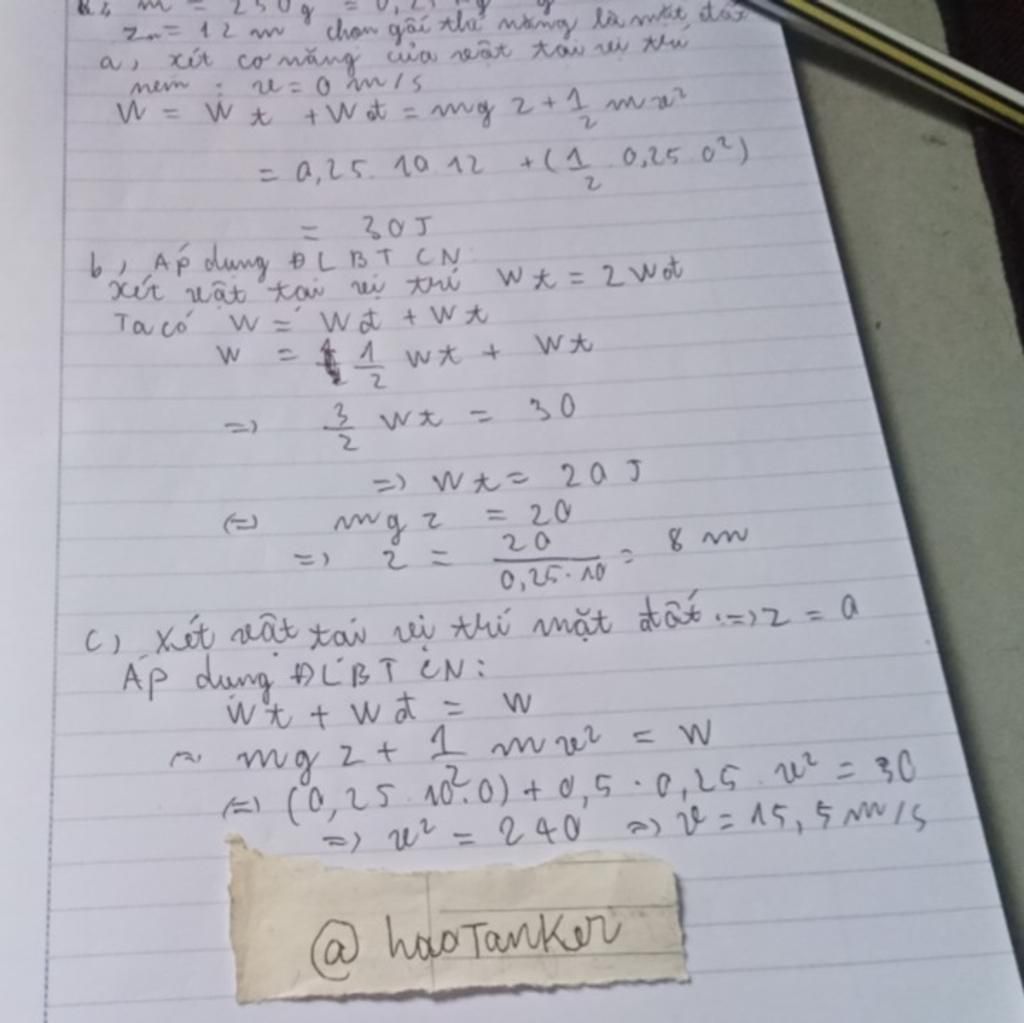 m = 250g = 0,25
zₘ = 12 m chọn gốc thế năng là mặt đất
a, xét cơ năng của vật tại vị trí
ném : v = 0 m/s
W = Wt + Wđ = mg z + 1/2 mv²
= 0,25. 10 12 + (1/2 0,25 0²)
= 30 J
b, Áp dụng ĐLBTCN
Xét vật tại vị trí Wt = 2 Wđ
Ta có W = Wđ + Wt
W = 1/2 Wt + Wt
=> 3/2 Wt = 30
=> Wt = 20 J
(=) mgz = 20
=> z = 20/0,25.10 = 8 m
c, Xét vật tại vị trí mặt đất .=> z = 0
Áp dụng ĐLBTCN:
Wt + Wđ = W
~ mgz + 1/2 mv² = W
(=) (0,25 .10.0) + 0,5 . 0,25 v² = 30
=> v² = 240 => v = 15,5 m/s
@haoTanker